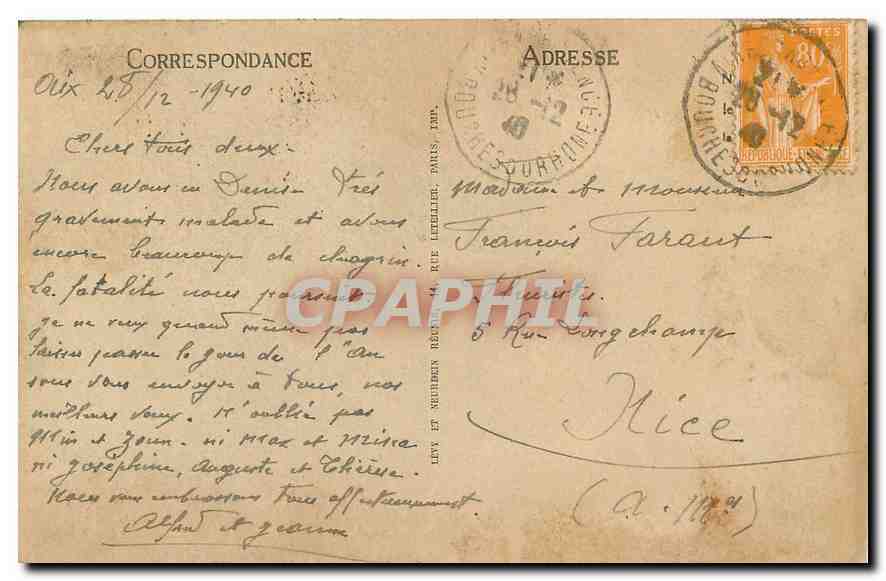 CORRESPONDANCE
Aix 28/12 - 1940
Chers tous deux.
Nous avons eu Denise très
gravement malade et avons
encore beaucoup de chagrin.
La fatalité nous poursuit
je ne veux quand même pas
laisser passer le jour de l'An
sans vous envoyer à tous, nos
meilleurs vœux. N'oublie pas
Mim et Zoun. ni Max et Mina
ni Joséphine, Auguste et Thérèse.
Nous vous embrassons tous affectueusement.
Alfred et Jeanne
LÉVY ET NEURDEIN RÉUNIS, 44, RUE LETELLIER, PARIS, IMP.
ADRESSE
Madame et Monsieur
François Faraut
Fleuriste
5 Rue Longchamp
Nice
(A. Mmes)
28 -12
40
BOUCHES DU RHONE
POSTES
80c
REPUBLIQUE
28 -12
40
BOUCHES DU RHONE
CPAPHIL